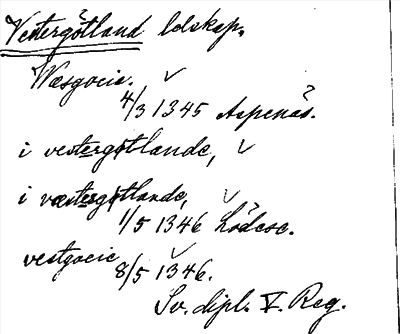 Vestergötland ldskap.
Wæsgocie.
4/3 1345 Aspenäs.
i vestergøtlande,
i væstergøtlande,
1/5 1346 Lödose.
vestgocie
8/5 1346.
Sv. dipl. V. Reg.